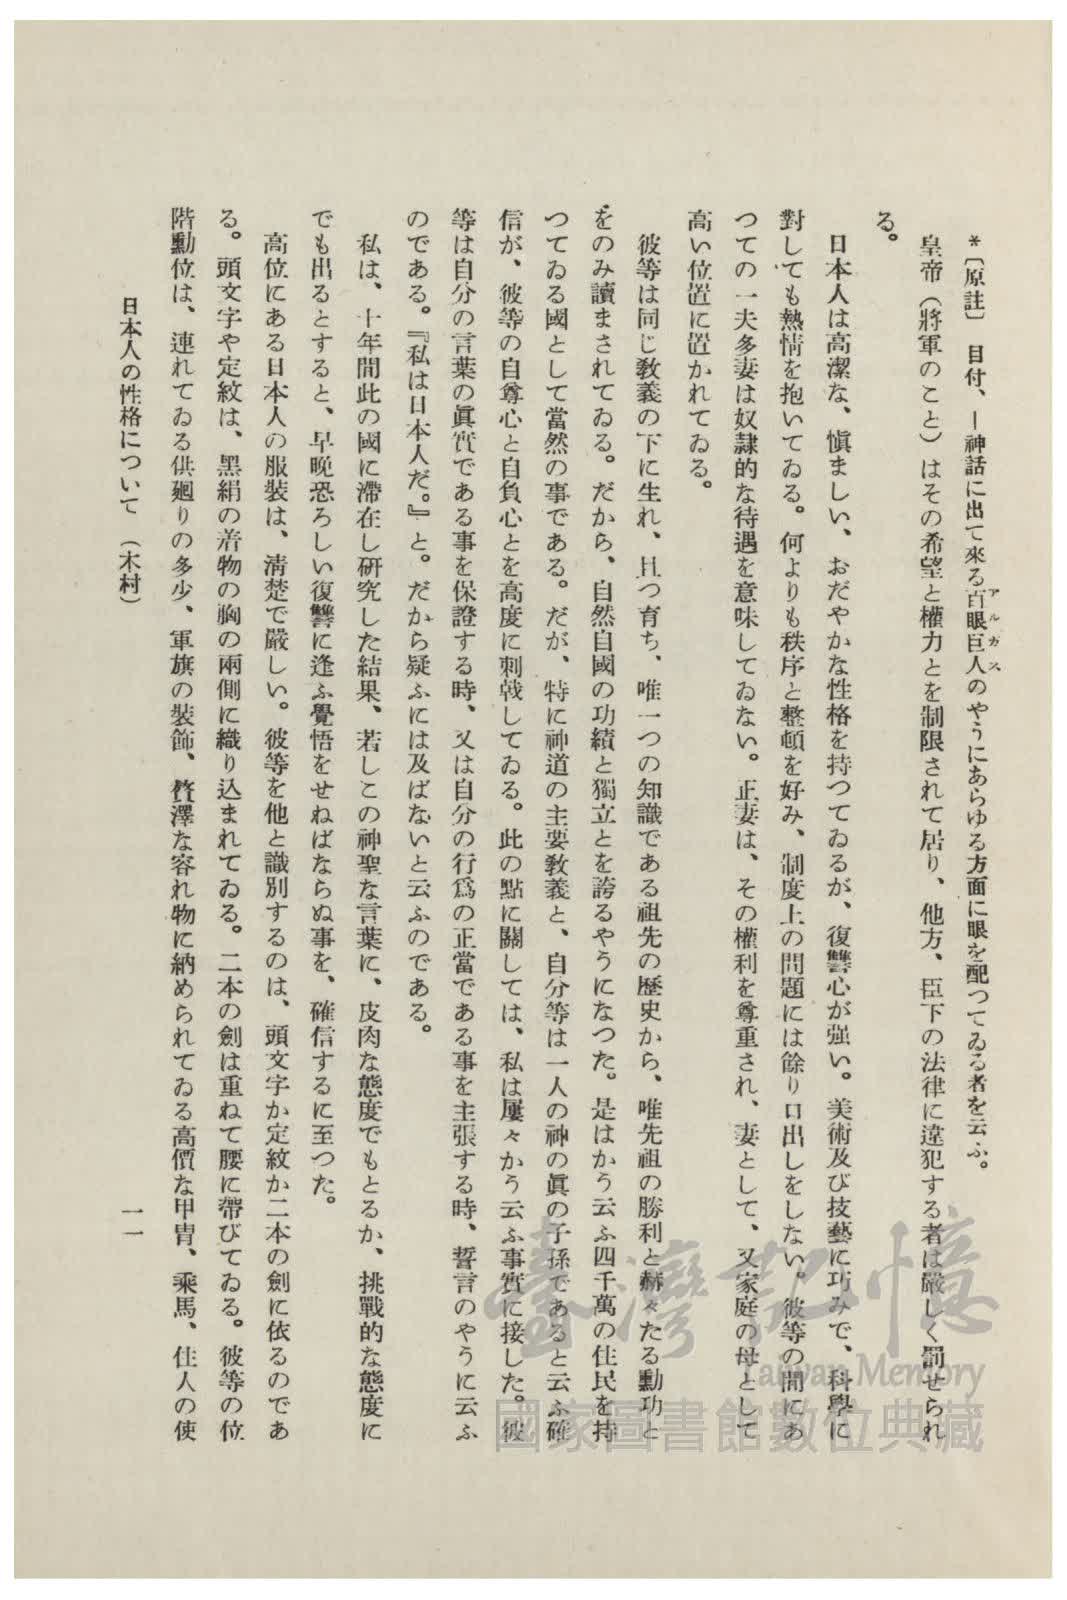 *〔原註〕 目付、―神話に出て來る百眼巨人のやうにあらゆる方面に眼を配つてゐる者を云ふ。
アルガス
皇帝（將軍のこと）はその希望と權力とを制限されて居り、他方、臣下の法律に違犯する者は嚴しく罰せられ
る。
日本人は高潔な、愼ましい、おだやかな性格を持つてゐるが、復讐心が强い。美術及び技藝に巧みで、科學に
對しても熱情を抱いてゐる。何よりも秩序と整頓を好み、制度上の問題には餘り口出しをしない。彼等の間にあ
つての一夫多妻は奴隷的な待遇を意味してゐない。正妻は、その權利を尊重され、妻として、又家庭の母として
高い位置に置かれてゐる。
彼等は同じ敎義の下に生れ、且つ育ち、唯一つの知識である祖先の歷史から、唯先祖の勝利と赫々たる勳功と
をのみ讀まされてゐる。だから、自然自國の功績と獨立とを誇るやうになつた。是はかう云ふ四千萬の住民を持
つてゐる國として當然の事である。だが、特に神道の主要敎義と、自分等は一人の神の眞の子孫であると云ふ確
信が、彼等の自尊心と自負心とを高度に刺戟してゐる。此の點に關しては、私は屢々かう云ふ事實に接した。彼
等は自分の言葉の眞實である事を保證する時、又は自分の行爲の正當である事を主張する時、誓言のやうに云ふ
のである。『私は日本人だ。』と。だから疑ふには及ばないと云ふのである。
私は、十年間此の國に滯在し硏究した結果、若しこの神聖な言葉に、皮肉な態度でもとるか、挑戰的な態度に
でも出るとすると、早晩恐ろしい復讐に逢ふ覺悟をせねばならぬ事を、確信するに至つた。
高位にある日本人の服裝は、淸楚で嚴しい。彼等を他と識別するのは、頭文字か定紋か二本の劍に依るのであ
る。頭文字や定紋は、黑絹の着物の胸の兩側に織り込まれてゐる。二本の劍は重ねて腰に帶びてゐる。彼等の位
階勳位は、連れてゐる供廻りの多少、軍旗の裝飾、贅澤な容れ物に納められてゐる高價な甲冑、乘馬、住人の使
日本人の性格について （木村）
一一
臺灣記憶
Taiwan Memory
國家圖書館數位典藏